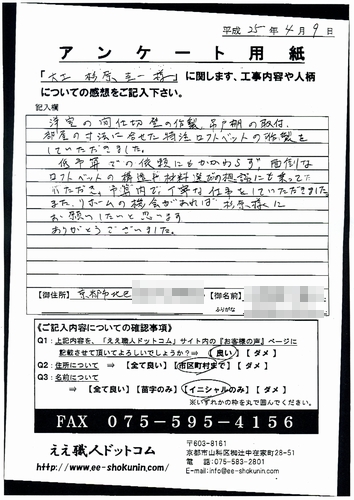 平成 25年 4月 9日
アンケート用紙
「大工 杉原 様」に関します、工事内容や人柄
についての感想をご記入下さい。
記入欄
洋室の間仕切壁の作製、吊戸棚の取付、
部屋の寸法に合せた特注ロフトベットの作製を
していただきました。
低予算での依頼にもかかわらず、面倒な
ロフトベットの構造や材料選定の相談にも乗って
いただき、予算内で丁寧な仕事をしていただきました。
また、リホームの機会があれば杉原様に
お願いしたいと思います
ありがとうございました。
【御住所】 京都市北区 【御名前】
ふりがな
《ご記入内容についての確認事項》
Q1:上記内容を、「ええ職人ドットコム」サイト内の『お客様の声』ページに
記載させて頂いてよろしいでしょうか?⇒ 【良い】 【ダメ】
Q2:住所について ⇒【全て良い】【市区町村まで】 【ダメ】
Q3:名前について
⇒【全て良い】【苗字のみ】【イニシャルのみ】【ダメ】
※いずれかの枠を丸で囲んでください。
FAX 075-595-4156
ええ職人ドットコム
http://www.ee-shokunin.com/
〒603-8161
京都市山科区椥辻中在家町28-51
電話:075-583-2801
E-mail:info@ee-shokunin.com